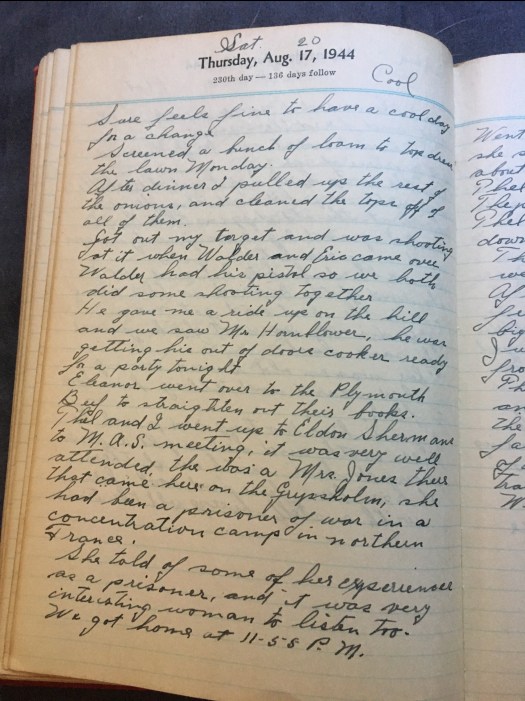 Sat. 20
Thursday, Aug. 17, 1944
230th day — 136 days follow
Cool
Sure feels fine to have a cool day
for a change
Screened a bunch of loam to top dress
the lawn Monday.
After dinner I pulled up the rest of
the onions, and cleaned the tops off of
all of them.
Got out my target and was shooting
at it when Walder and Eric came over
Walder had his pistol so we both
did some shooting together
He gave me a ride up on the hill
and we saw Mr Hornblower, he was
getting his out of doors cooker ready
for a party tonight
Eleanor went over to the Plymouth
to straighten out their books.
Phil and I went up to Eldon Shermans
to M.A.S. meeting, it was very well
attended, the was a Mrs. Jones there
that came here on the Grypsholm, she
had been a prisoner of war in a
concentration camp in northern
France.
She told of some of her experiences
as a prisoner, and it was very
interesting woman to listen too.
We got home at 11-55 P.M.
Went
she s
about
Phil
They
Phil
down
Th
we
Af
fe
big
I w
fro
Ph
an
the
fa
of
tra
W